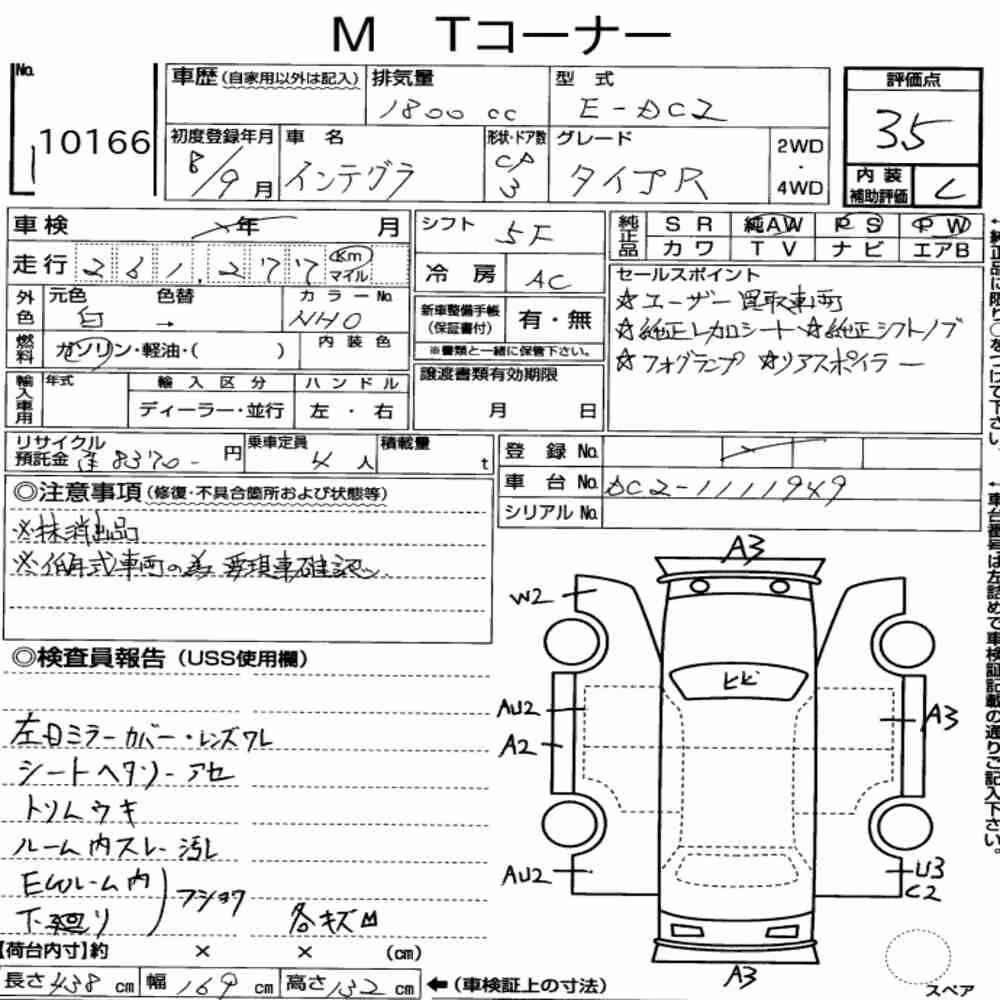 M Tコーナー
No. 10166
車歴(自家用以外は記入)
排気量 1800 cc
型式 E-DC2
評価点 3.5
初度登録年月 8/9月
車名 インテグラ
形状・ドア数 CP 3
グレード タイプR
2WD・4WD
内装補助評価 C
車検 年 月
シフト 5F
純正品 SR 純AW PS PW
カワ TV ナビ エアB
走行 261,277 Km マイル
冷房 AC
セールスポイント
☆ユーザー買取車両
☆純正レカロシート ☆純正シフトノブ
☆フォグランプ ☆リアスポイラー
外色 元色 白 色替 → カラーNo. NH0
新車整備手帳(保証書付) 有・無
※書類と一緒に保管下さい。
燃料 ガソリン・軽油・( ) 内装色
輸入車用 年式 輸入区分 ハンドル
ディーラー・並行 左・右
譲渡書類有効期限
月 日
リサイクル預託金 8370- 円
乗車定員 4人
積載量 t
登録No.
車台No. DC2-1111949
シリアルNo.
◎注意事項(修復・不具合箇所および状態等)
※抹消出品
※低年式車両の為 要現車確認
◎検査員報告(USS使用欄)
左ドミラーカバー・レンズワレ
シートヘタリ-アセ
トリムウキ
ルーム内スレ-汚レ
Eルーム内
下廻り
フショク
各キズ凹
A3
W2
ヒビ
AU2
A2
A3
AU2
U3
C2
A3
スペア
【荷台内寸】約 × × (cm)
長さ 438 cm 幅 169 cm 高さ 132 cm ←(車検証上の寸法)
←純正品に限り○をつけて下さい。
←車台番号は左詰めで車検証記載の通りご記入下さい。